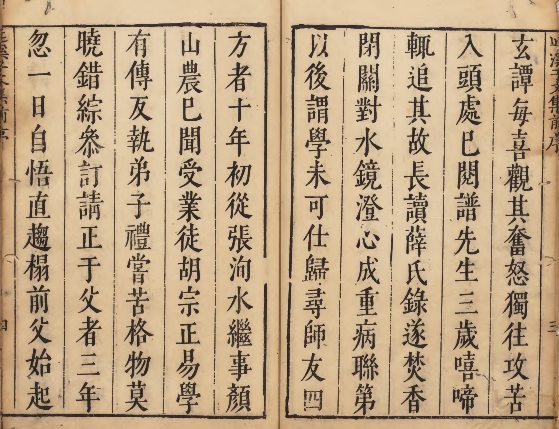 玄譚每喜觀其奮怒獨往攻苦
入頭處已閱譜先生三歲嘻啼
輒追其故長讀薛氏錄遂焚香
閉關對水鏡澄心成重病聯第
以後謂學未可仕歸尋師友四
方者十年初從張洵水繼事顏
山農已聞受業徒胡宗正易學
有傳反執弟子禮嘗苦格物莫
曉錯綜叅訂請正于父者三年
忽一日自悟直趨榻前父始起